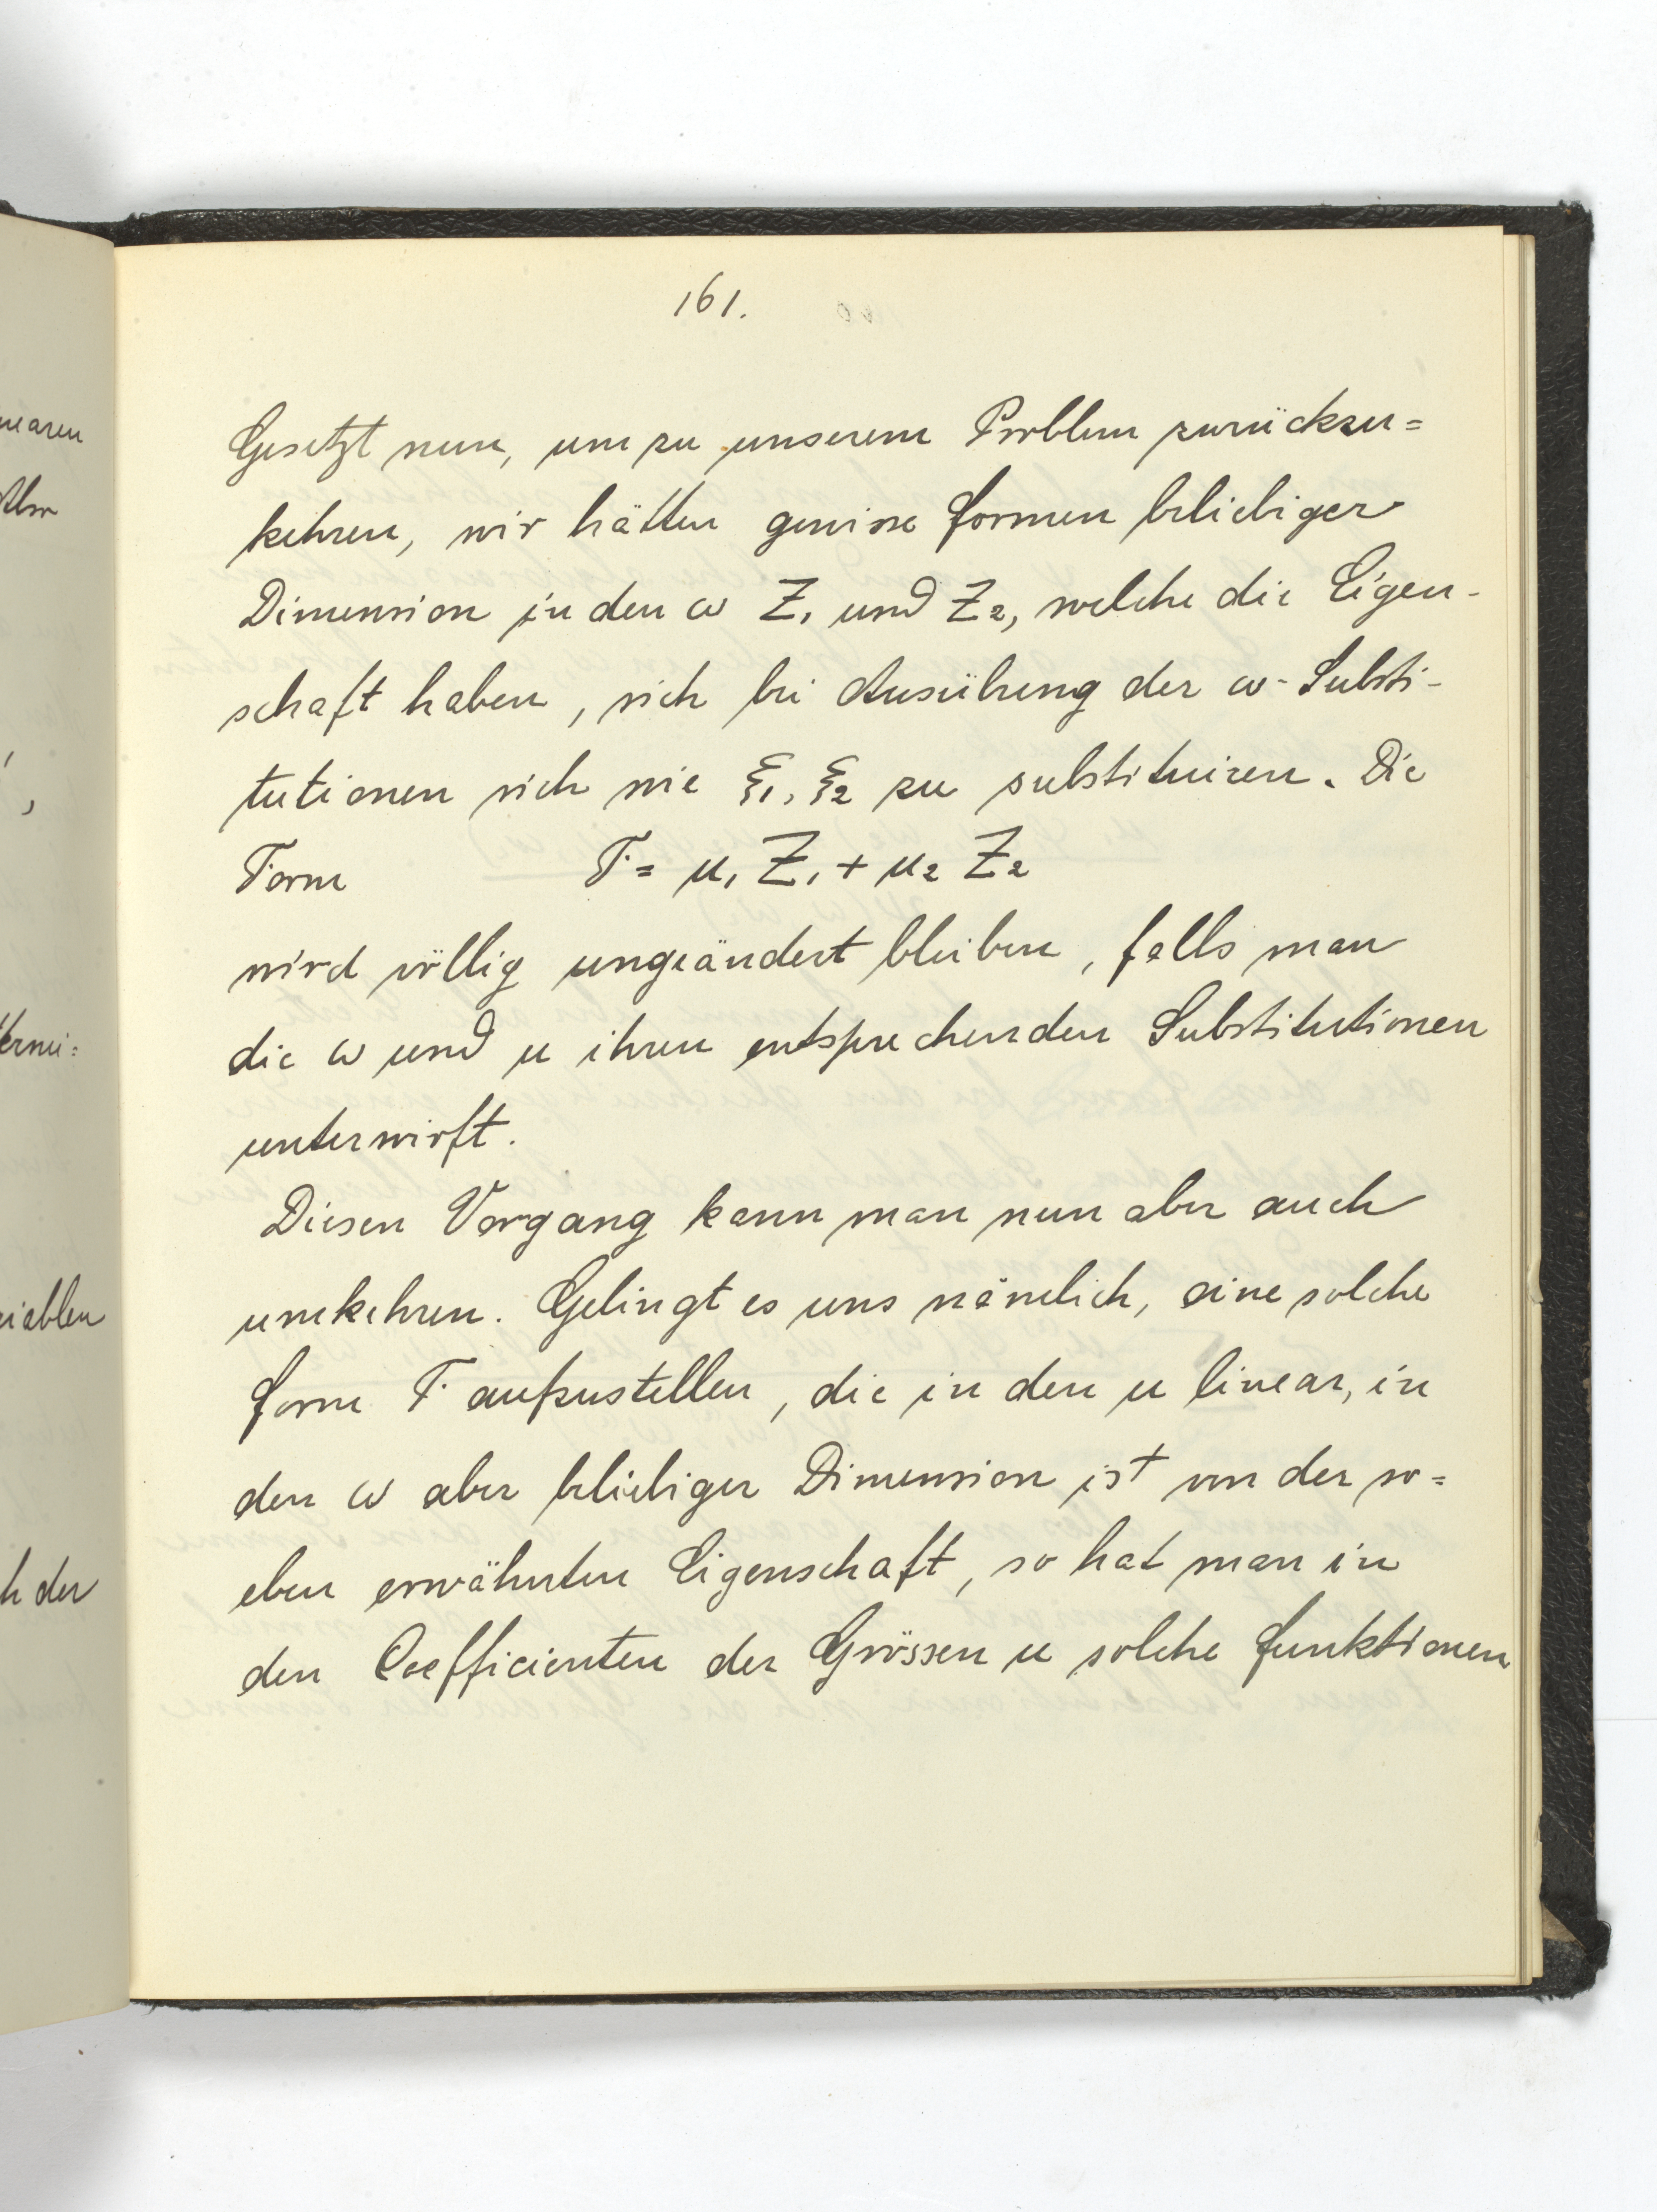 161.
Gesetzt nun, um zu unserem Problem zurückzu=
kehren, wir hätten gewisse Formen beliebiger
Dimension in den ω Z₁ und Z₂, welche die Eigen-
schaft haben, sich bei Ausübung der ω-Substi-
tutionen sich wie ξ₁, ξ₂ zu substituiren. Die
Form F = u₁ Z₁ + u₂ Z₂
wird völlig ungeändert bleiben, falls man
die ω und u ihren entsprechenden Substitutionen
unterwirft.
Diesen Vorgang kann man nun aber auch
umkehren. Gelingt es uns nämlich, eine solche
Form F aufzustellen, die in den u linear, in
den ω aber beliebiger Dimension ist von der so=
eben erwähnten Eigenschaft, so hat man in
den Coefficienten der Grössen u solche Funktionen